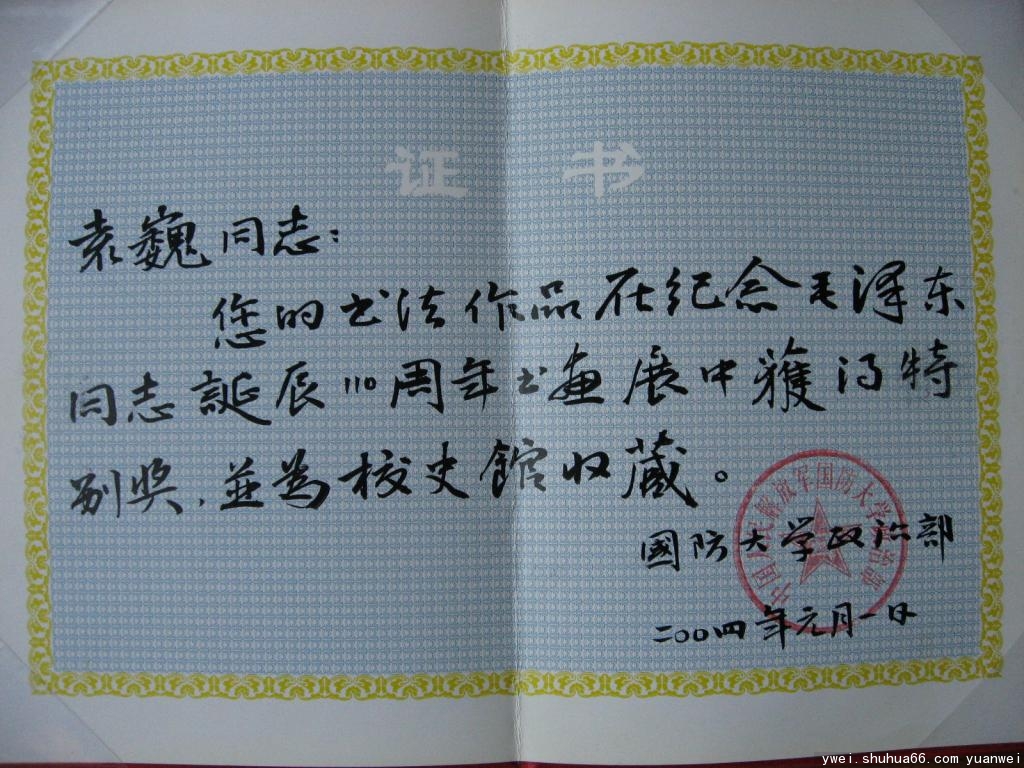 证书
袁巍同志：
您的书法作品在纪念毛泽东
同志誕辰110周年书画展中獲得特
别奖，並为校史館收藏。
中国人民解放军国防大学政治部
國防大学政治部
二〇〇四年元月一日
ywei.shuhua66.com yuanwei